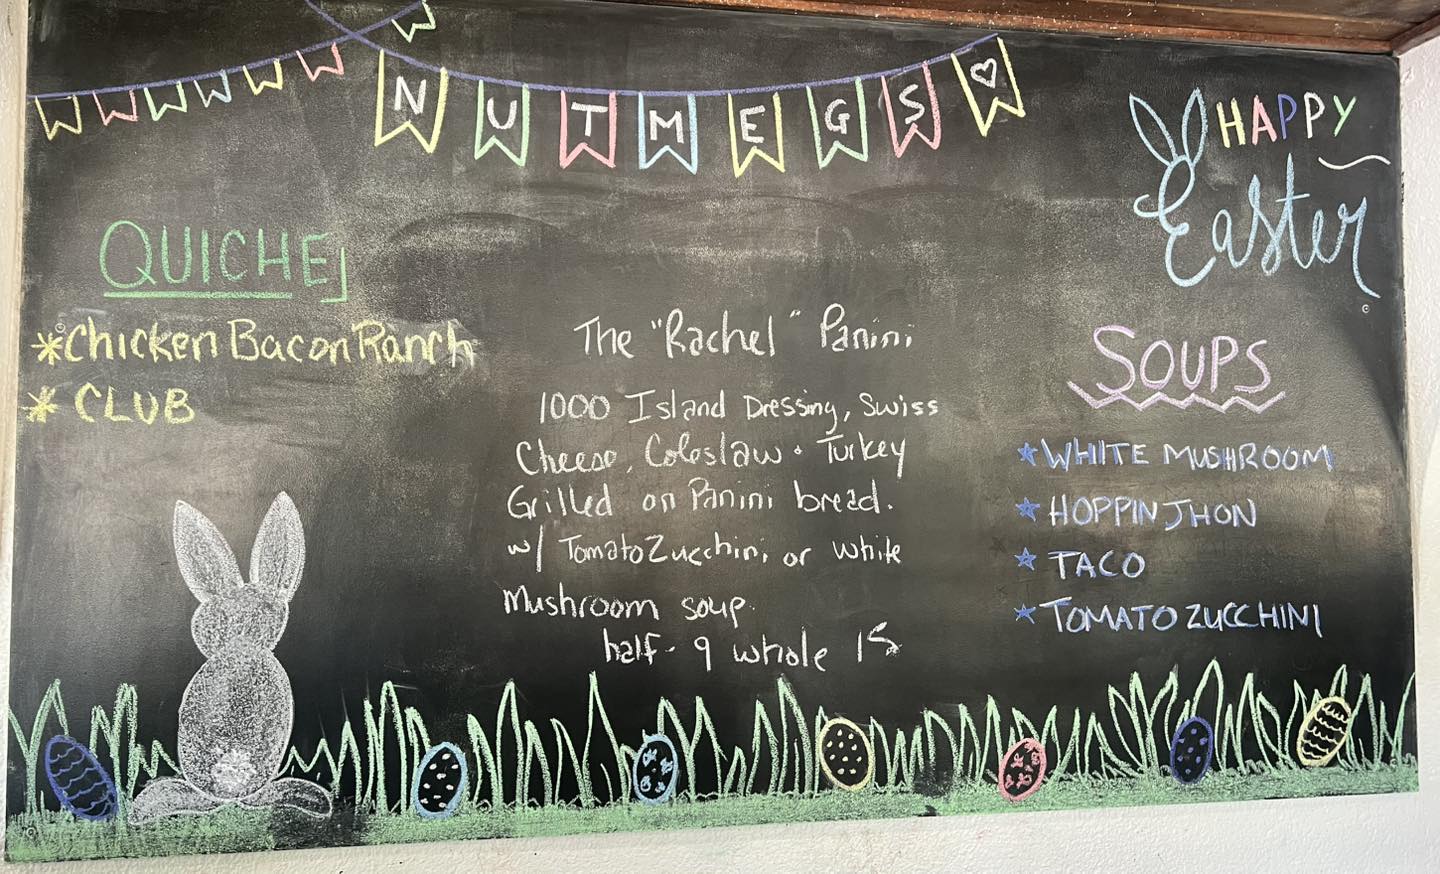 NUTMEGS
HAPPY
Easter
QUICHE
*Chicken Bacon Ranch
* CLUB
The "Rachel" Panini
1000 Island Dressing, Swiss
Cheese, Coleslaw • Turkey
Grilled on Panini bread.
w/ Tomato Zucchini or white
Mushroom soup.
half - 9 whole 15
SOUPS
★WHITE MUSHROOM
★ HOPPIN JHON
★ TACO
★TOMATO ZUCCHINI